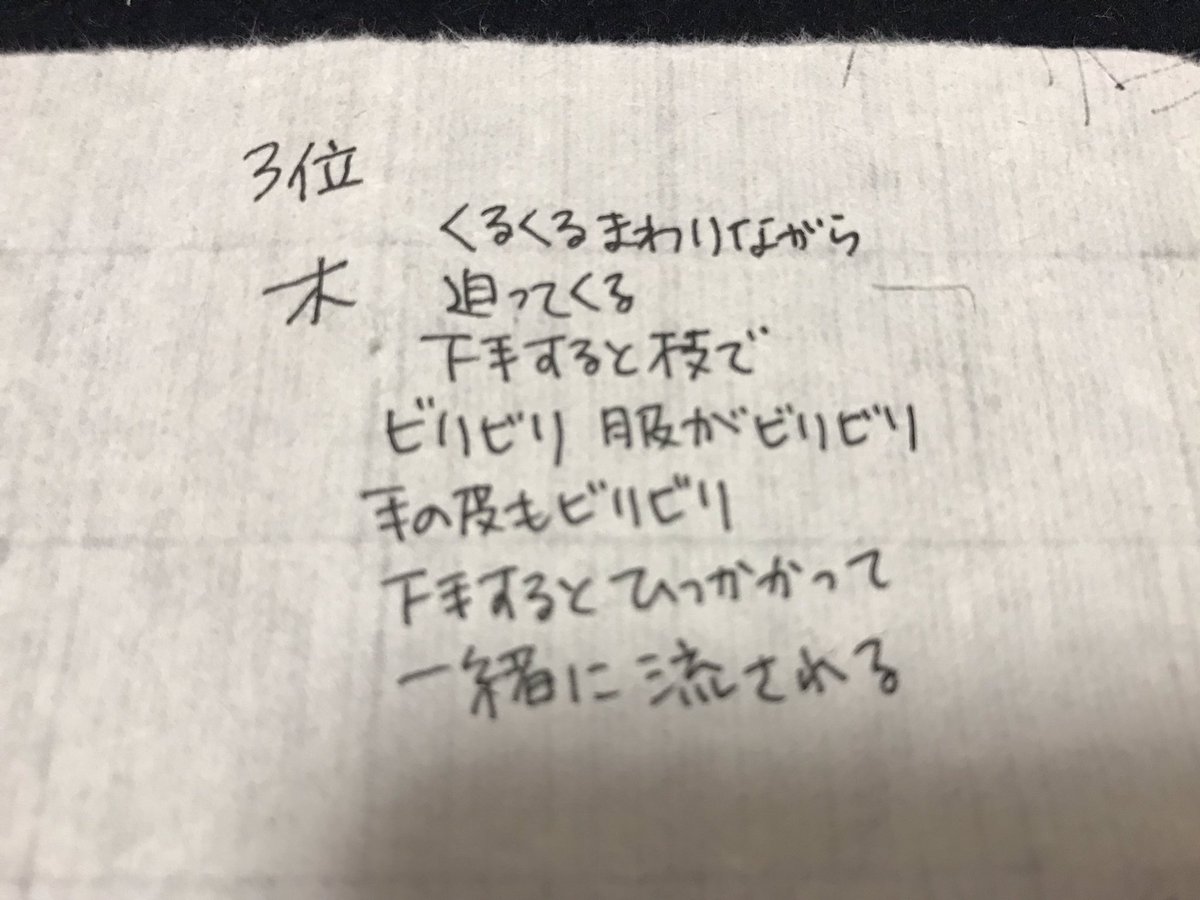 3位
くるくるまわりながら
木 迫ってくる
下手すると枝で
ビリビリ 服がビリビリ
手の皮もビリビリ
下手するとひっかかって
一緒に流される